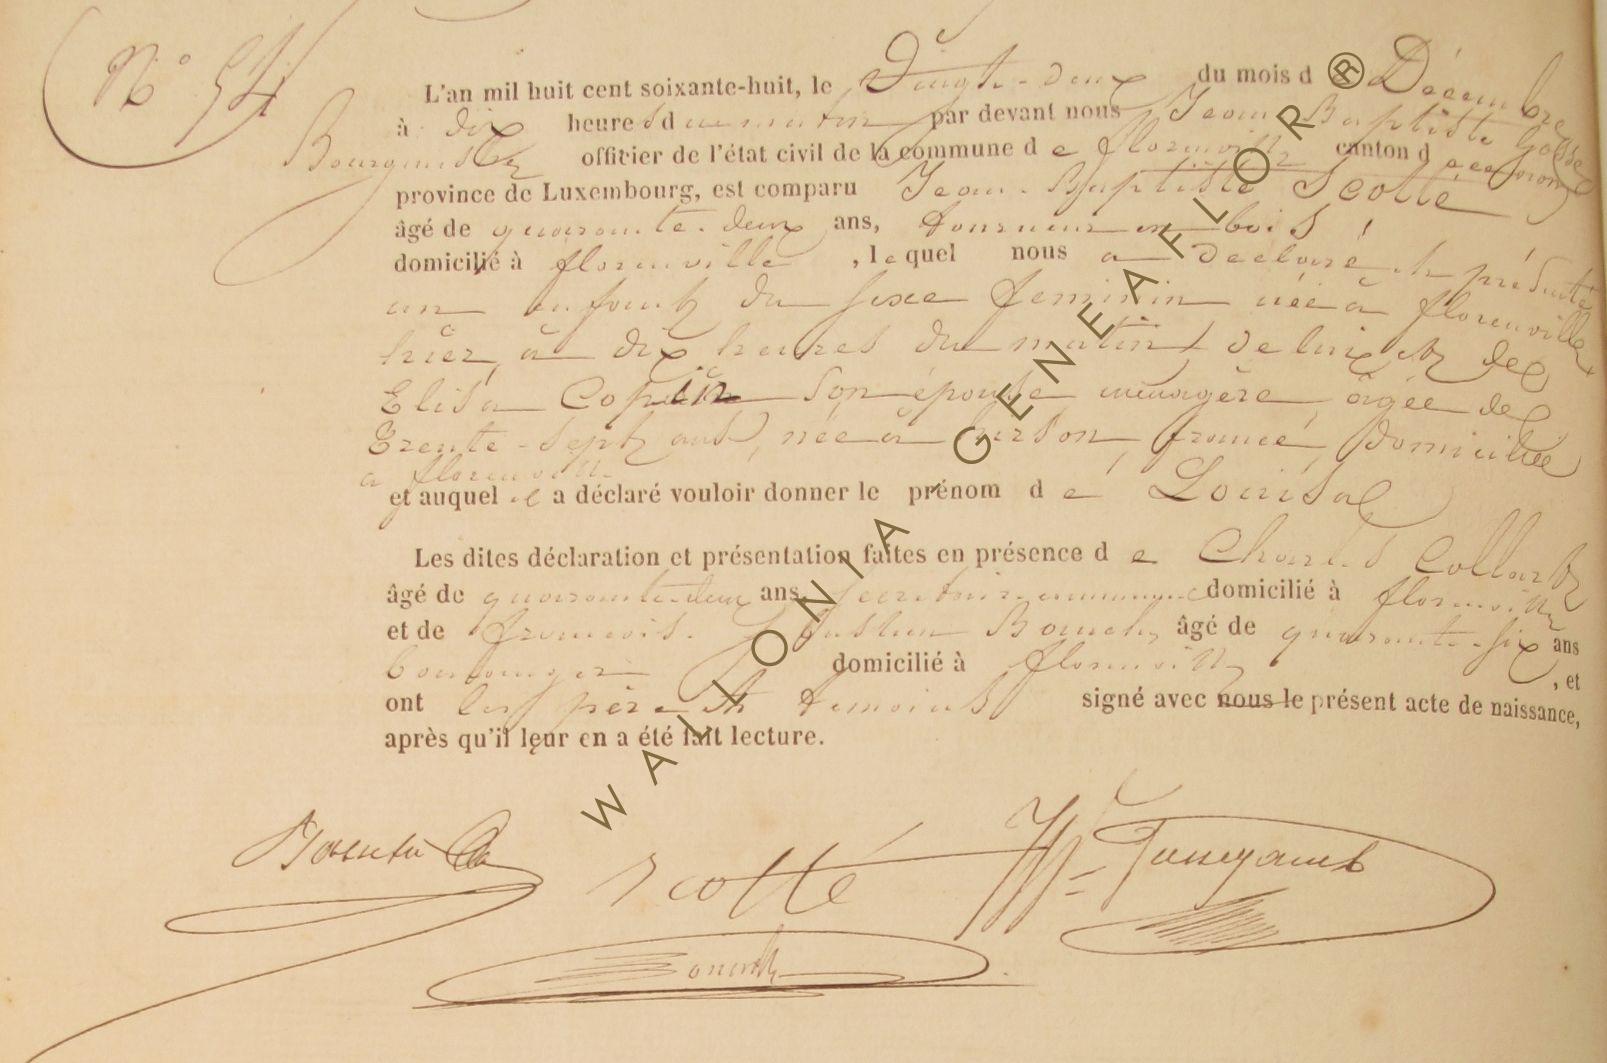 N° 54
L'an mil huit cent soixante-huit, le Vingt-deux du mois de Décembre
à dix heures du matin par devant nous Jean Baptiste
Bourgmestre officier de l'état civil de la commune de florenville canton de
province de Luxembourg, est comparu Jean-Baptiste Scotté
âgé de quarante-deux ans, tourneur en bois,
domicilié à florenville, lequel nous a déclaré et présenté
un enfant du sexe feminin née à florenville
hier, à dix heures du matin, de lui et de
Elisa Copin son épouse ménagère, âgée de
trente-sept ans, née à hirson, france, domiciliée
a florenville
et auquel il a déclaré vouloir donner le prénom de Louisa
Les dites déclaration et présentation faites en présence de Charles Collart
âgé de quarante-deux ans, secrétaire communal domicilié à florenville
et de françois- Bouché, âgé de quarante-six ans
boulanger domicilié à florenville, et
ont les père et témoins signé avec nous le présent acte de naissance,
après qu'il leur en a été fait lecture.
Scotté
WALLONIA, GENEAFLOR ®